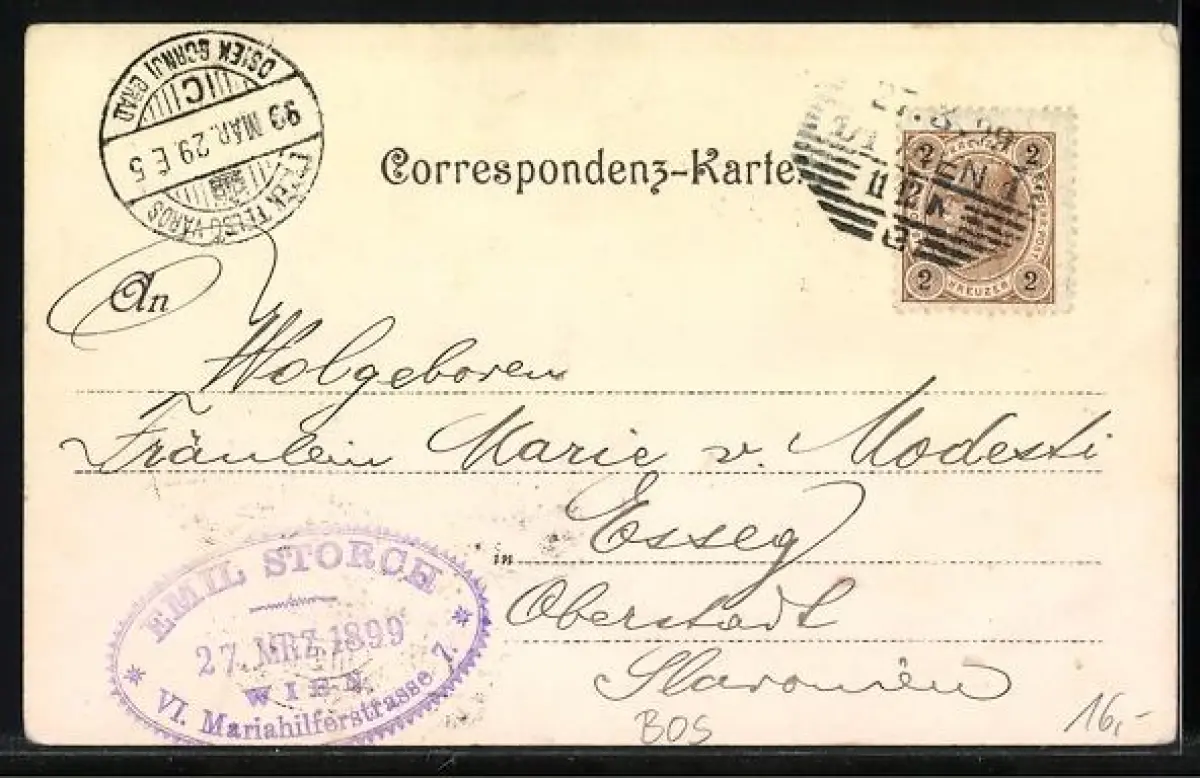 OSIEK GORNJI GRAD
C
99 MAR. 29 E 5
FELSŐ VÁROS
Correspondenz-Karte.
27.3.99
11 12
3
2 2
2 KREUZER 2
An
Wolgeboren
Fräulein Marie v. Modesti
in Esseg
Oberstadt
Slavonien
EMIL STORCH
27. MRZ. 1899
WIEN
VI. Mariahilferstrasse 7.
BOS
16,-